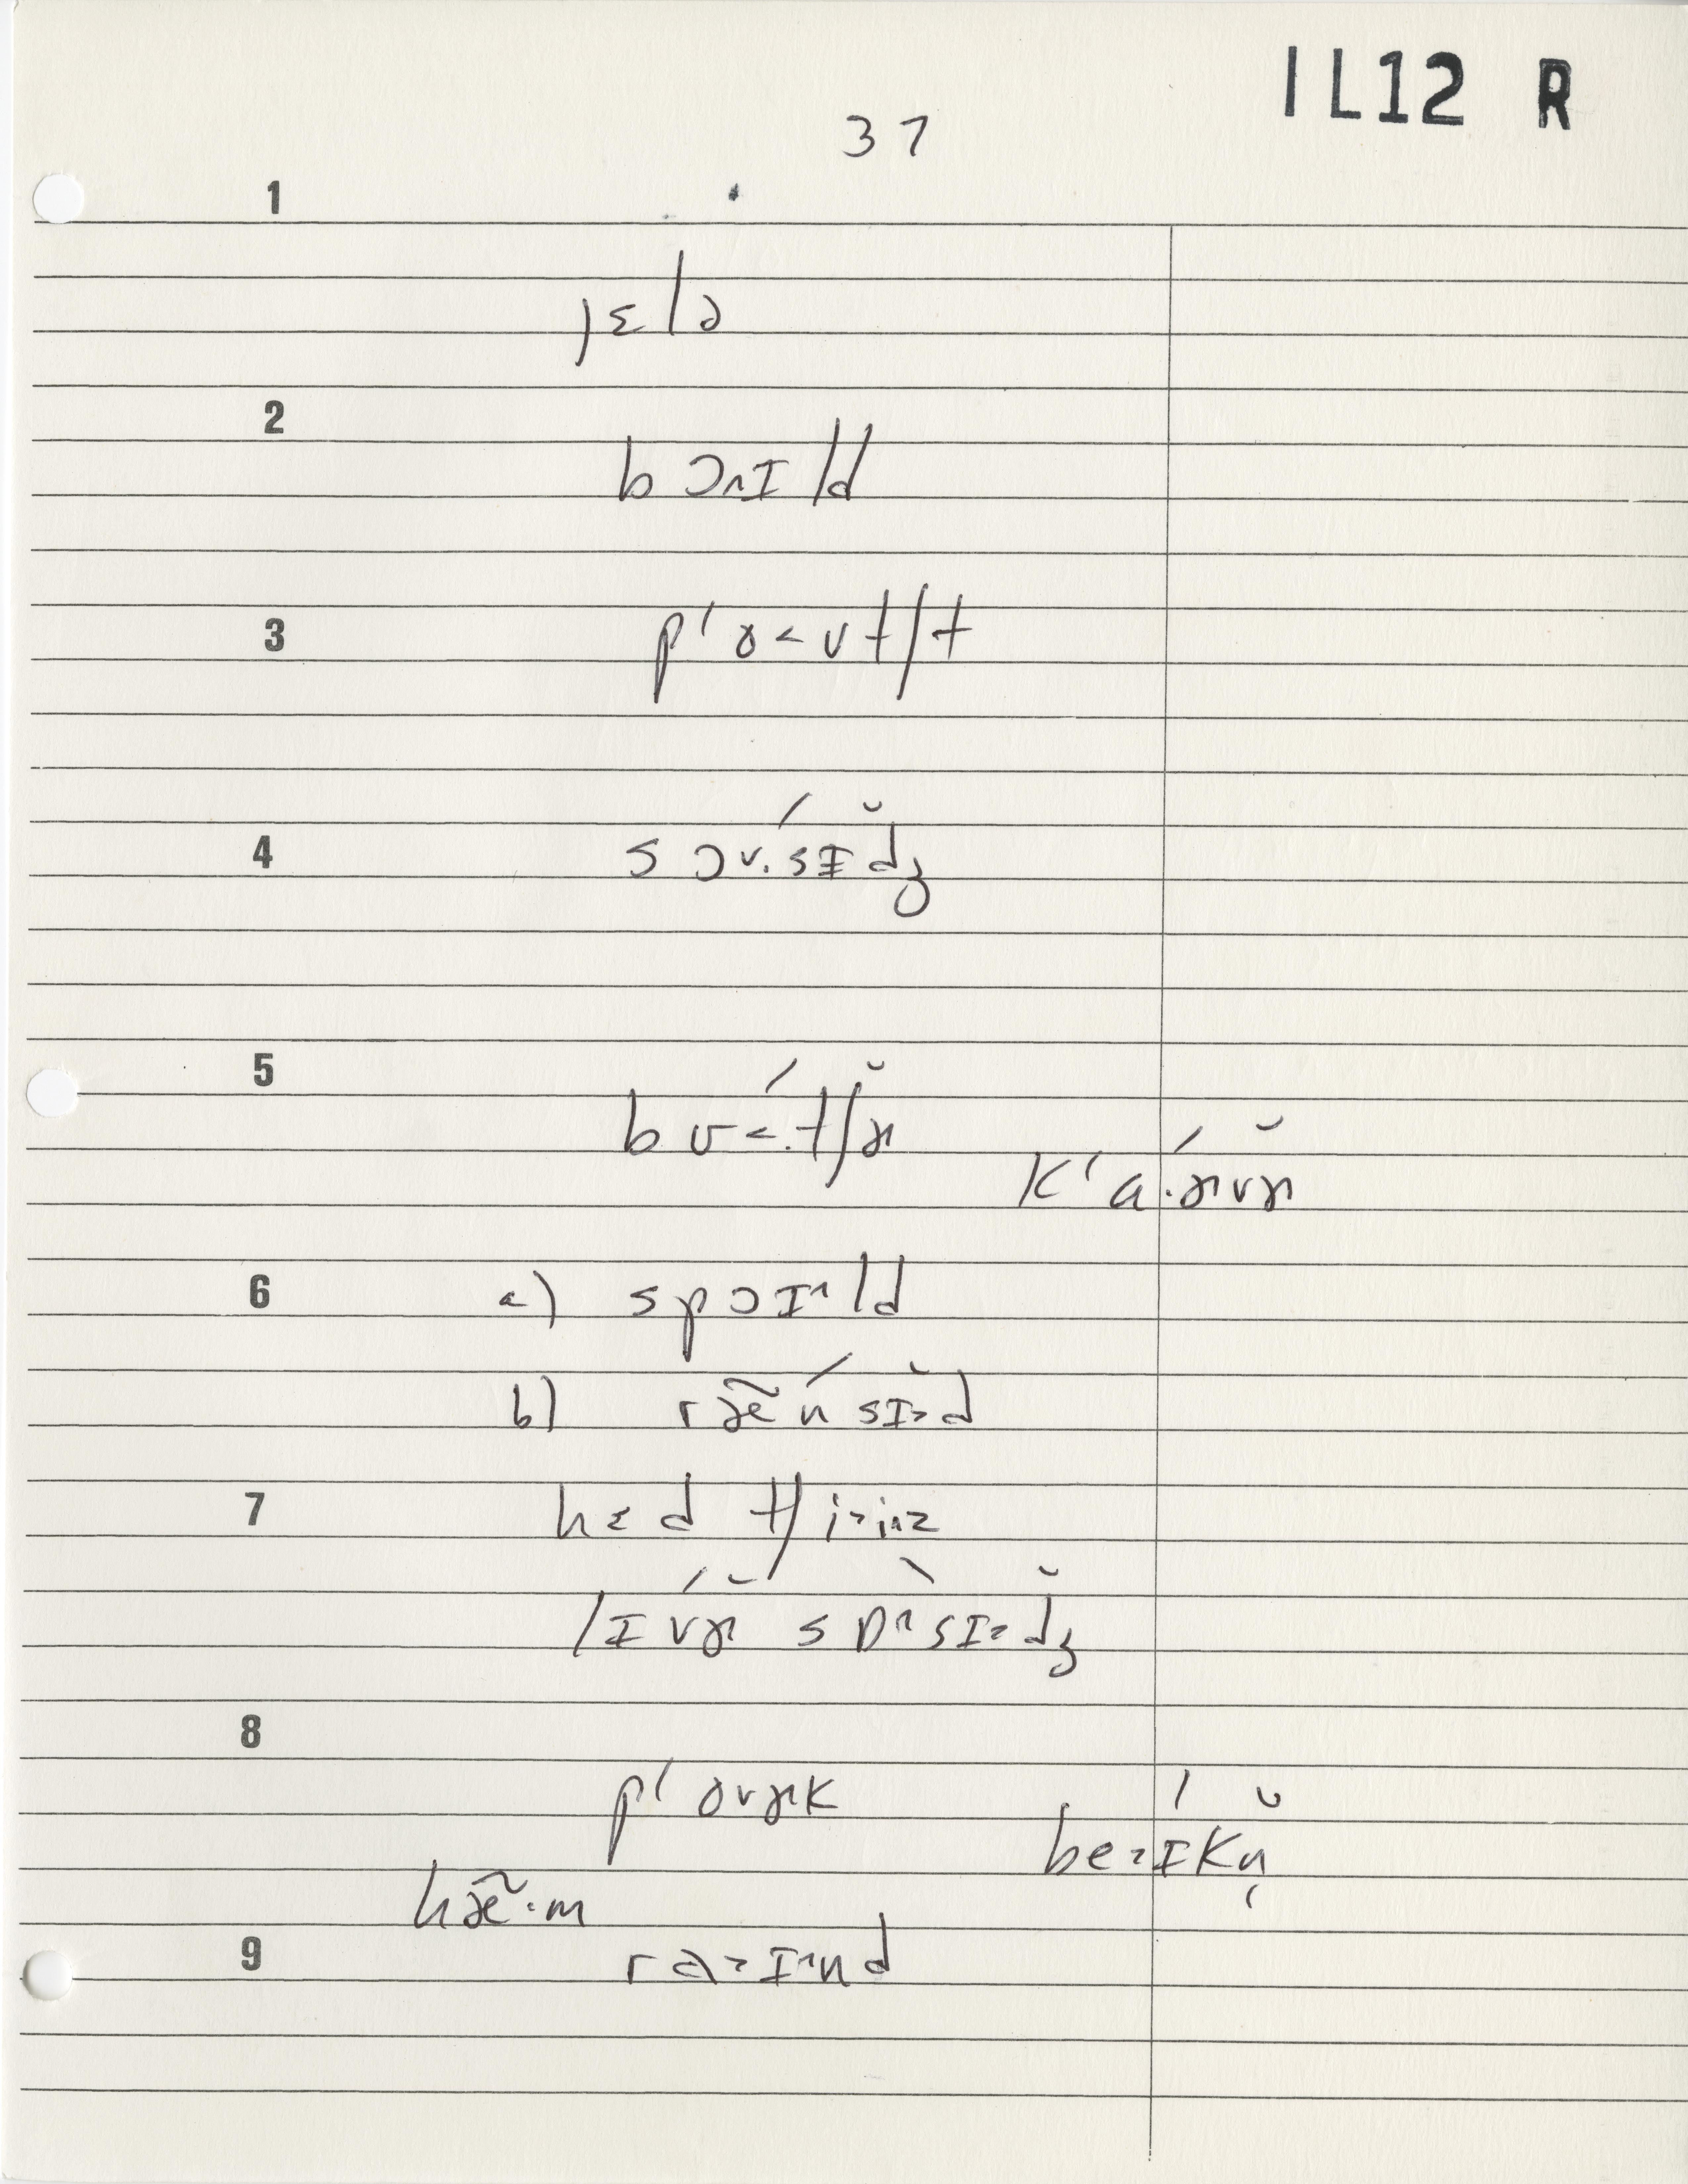 IL12 R
37
1
jɛlə
2
bɔ˄ɪld
3
pʻɤ˂vtʃt
4
sɔ˅·́sɪd̆ʒ
5
bʊ˂·́tʃɚ̆
kʻɑ·́ɚvɚ̆
6 a) spɔɪ˄ld
b) ræ̃ń sɪ̆˃d
7 hɛd tʃi˃i˄z
lɪ́vɚ̆ sɒ˄̀sɪ˃d̆ʒ
8
pʻɔ˅ɚk
bé˃ɪkn̩̆
hæ̃·m
9
ra˃ɪ˄nd